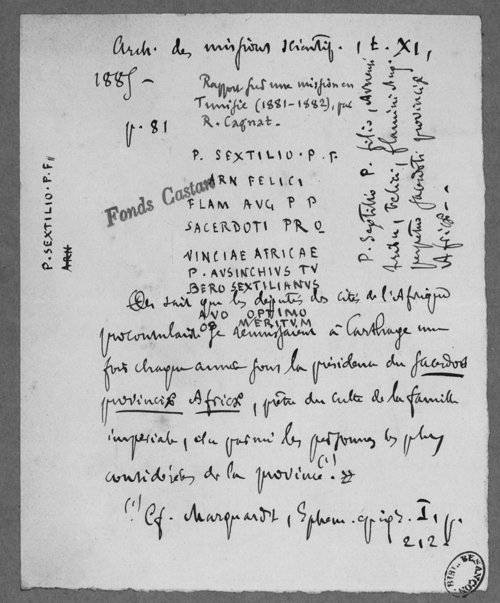 Arch. des missions scientif., t. XI,
1885 —
Rapport sur une mission en
Tunisie (1881-1882), par
R. Cagnat.
p. 81
P. SEXTILIO. P. F
ARN FELICI
FLAM AVG P P
SACERDOTI PRO
VINCIAE AFRICAE
P. AVSINCHIVS TV
BERO SEXTILIANVS
AVO OPTIMO
OB MERITVM
P. SEXTILIO. P. F
ARN
P. Sextilio P. filio,
Felici, flamini Aug.
perpetuo sacerdoti provinciæ
Africæ - -
Fonds Castan
On sait que les députés des cités de l'Afrique
proconsulaire se réunissaient à Carthage une
fois chaque année sous la présidence du sacerdos
provinciæ Africæ, prêtre du culte de la famille
impériale, élu parmi les personnes les plus
considérées de la province (1). »
(1) Cf. Marquardt, Ephem. epigr. I, p.
212.
BIBL. BESANCON